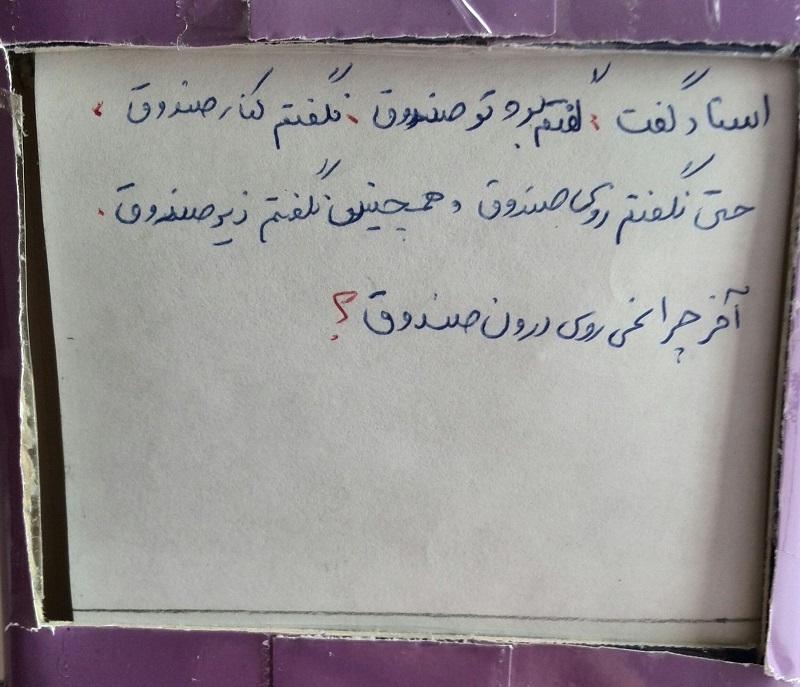 استاد گفت : گفتم برو تو صندوق ، نگفتم کنار صندوق ،
حتی نگفتم روی صندوق و همچنین نگفتم زیر صندوق .
آخر چرا نمی روی درون صندوق ؟